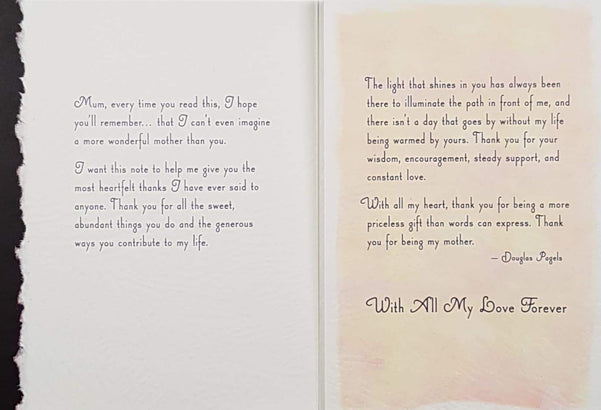 Mum, every time you read this, I hope
you'll remember... that I can't even imagine
a more wonderful mother than you.
I want this note to help me give you the
most heartfelt thanks I have ever said to
anyone. Thank you for all the sweet,
abundant things you do and the generous
ways you contribute to my life.
The light that shines in you has always been
there to illuminate the path in front of me, and
there isn't a day that goes by without my life
being warmed by yours. Thank you for your
wisdom, encouragement, steady support, and
constant love.
With all my heart, thank you for being a more
priceless gift than words can express. Thank
you for being my mother.
– Douglas Pagels
With All My Love Forever